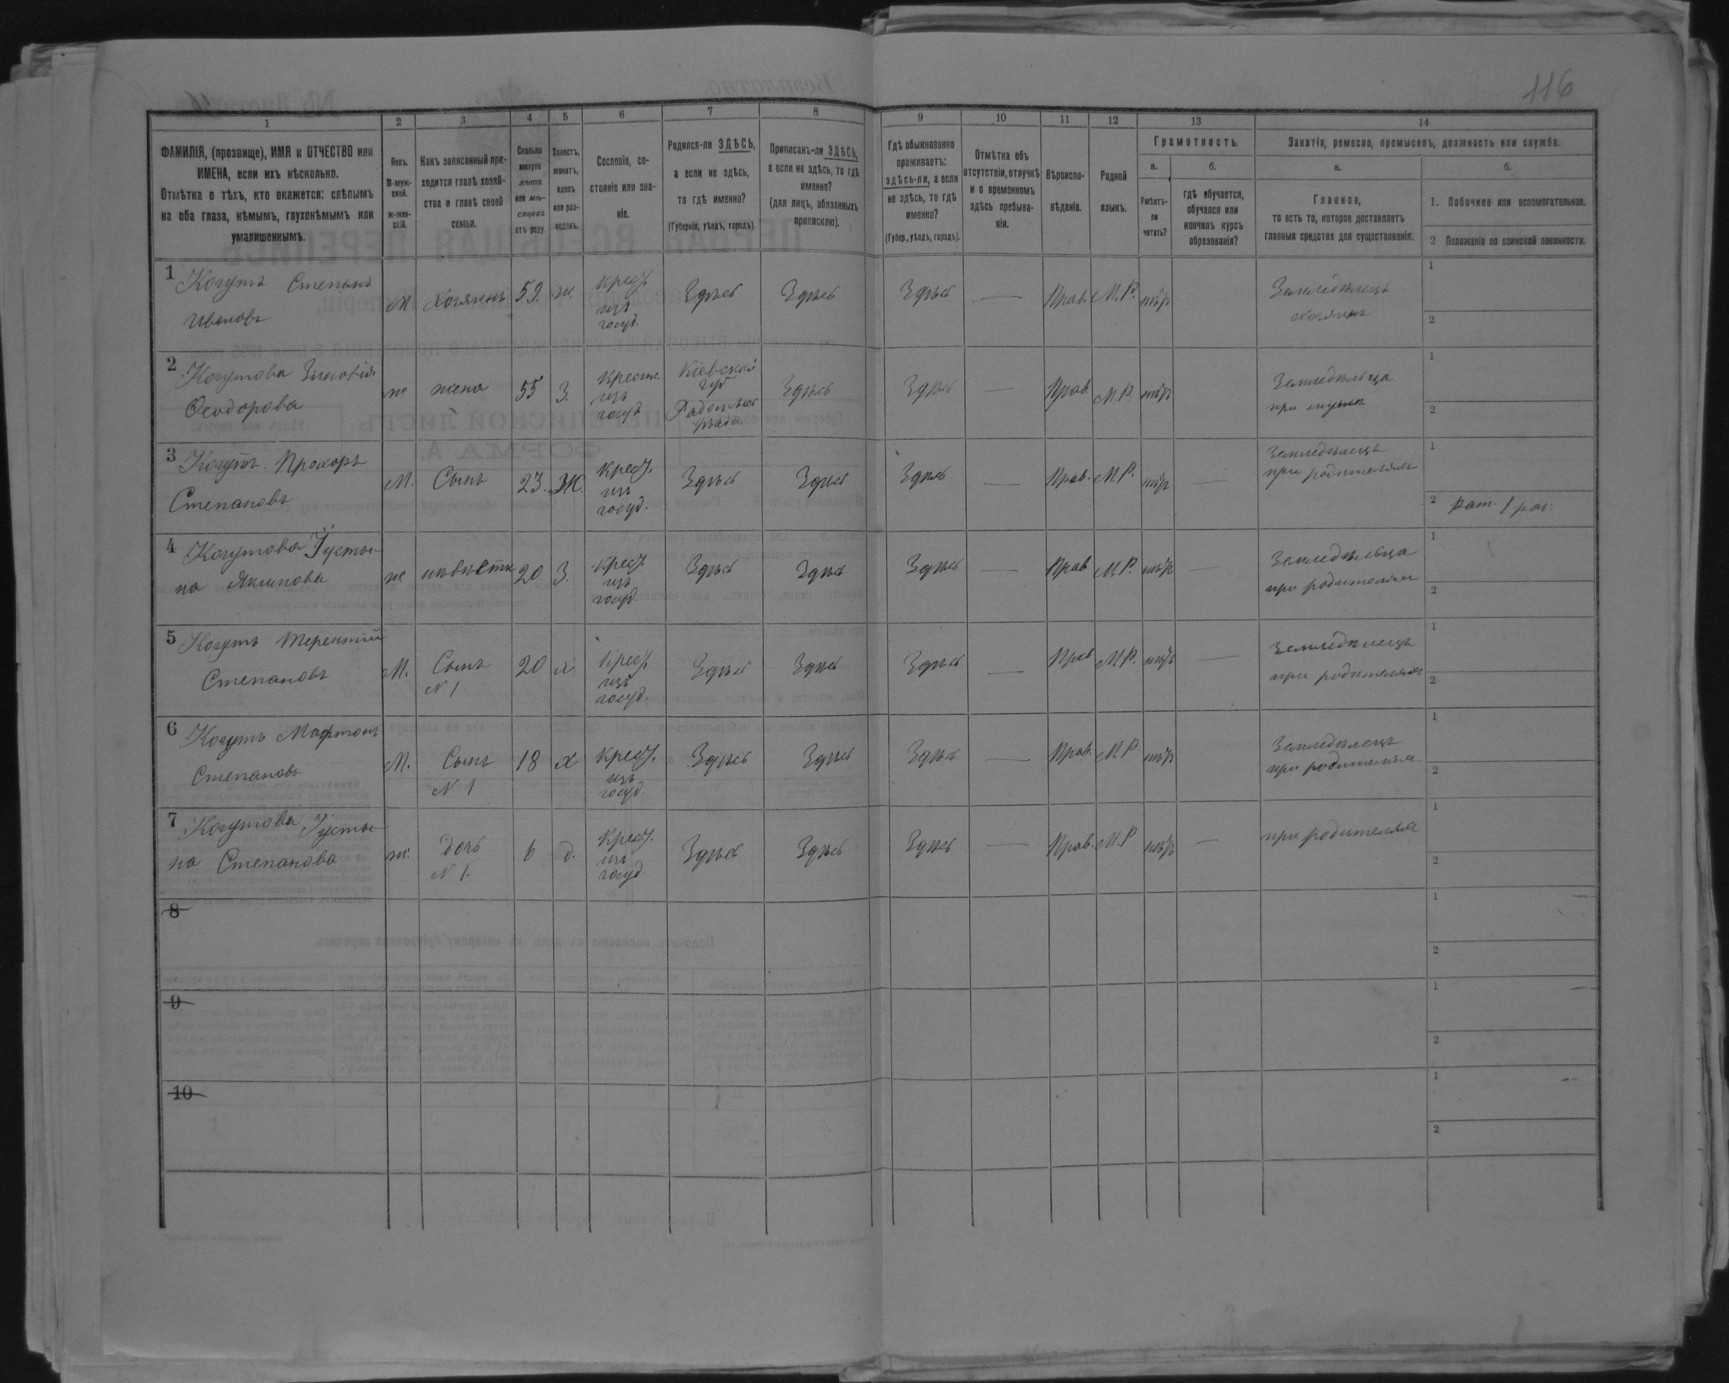 116
1 2 3 4 5 6 7 8 9 10 11 12 13 14
ФАМИЛІЯ, (прозвище), ИМЯ и ОТЧЕСТВО или
ИМЕНА, если ихъ нѣсколько.
Отмѣтка о тѣхъ, кто окажется: слѣпымъ
на оба глаза, нѣмымъ, глухонѣмымъ или
умалишеннымъ.
Полъ.
М-муж-
ской.
ж-жен-
скій.
Какъ записанный при-
ходится главѣ хозяй-
ства и главѣ своей
семьи.
Сколько
минуло
лѣтъ
или мѣ-
сяцевъ
отъ роду.
Холостъ,
женатъ,
вдовъ
или раз-
веденъ.
Сословіе, со-
стояніе или зва-
ніе.
Родился-ли ЗДѢСЬ,
а если не здѣсь,
то гдѣ именно?
(Губернія, уѣздъ, городъ).
Приписанъ-ли ЗДѢСЬ,
а если не здѣсь, то гдѣ
именно?
(для лицъ, обязанныхъ
припискою).
Гдѣ обыкновенно
проживаетъ:
здѣсь-ли, а если
не здѣсь, то гдѣ
именно?
(Губер., уѣздъ, городъ).
Отмѣтка объ
отсутствіи, отлучкѣ
и о временномъ
здѣсь пребыва-
ніи.
Вѣроиспо-
вѣданіе.
Родной
языкъ.
Грамотность.
а.
Умѣетъ-
ли
читать?
б.
гдѣ обучается,
обучался или
кончилъ курсъ
образованія?
Занятіе, ремесло, промыселъ, должность или служба.
а.
Главное,
то есть то, которое доставляетъ
главныя средства для существованія.
б.
1. Побочное или вспомогательное.
2 Положеніе по воинской повинности.
1 Когутъ Степанъ
Ивановъ
М Хозяинъ 59. ж. крест. изъ госуд. Здѣсь Здѣсь Здѣсь — Прав. М.Р. нѣтъ
Земледѣлецъ
хозяинъ
1
2
2 Когутова Зиновія
Ѳеодорова
ж жена 55 З. Крест. изъ госуд. Кіевской губ Радомысл уѣзда Здѣсь Здѣсь — Прав. М.Р. нѣтъ
Земледѣльца
при мужѣ
1
2
3 Когутъ Прохоръ
Степановъ
М. Сынъ 23. Ж. Крест. изъ госуд. Здѣсь Здѣсь Здѣсь — Прав. М.Р. нѣтъ —
Земледѣлецъ
при родителяхъ
1
2 Рат. 1 раз.
4 Когутова Густы-
на Якимова
ж невѣстк 20 З. Крест изъ госуд. Здѣсь Здѣсь Здѣсь — Прав М.Р. нѣтъ —
Земледѣльца
при родителях
1
2
5 Когутъ Терентій
Степановъ
М. Сынъ N 1 20 х Крест изъ госуд. Здѣсь Здѣсь Здѣсь — Прав М.Р. нѣтъ —
Земледѣлецъ
при родителях
1
2
6 Когутъ
Степановъ
М. Сынъ N 1 18 х Крест. изъ госуд Здѣсь Здѣсь Здѣсь — Прав М.Р. нѣтъ
Земледѣлецъ
при родителях
1
2
7 Когутова Густы-
на Степанова
ж. Дочь N 1. 6 д. Крест. изъ госуд. Здѣсь Здѣсь Здѣсь — Прав. М.Р нѣтъ —
при родителях
1
2
8
1
2
9
1
2
10
1
2